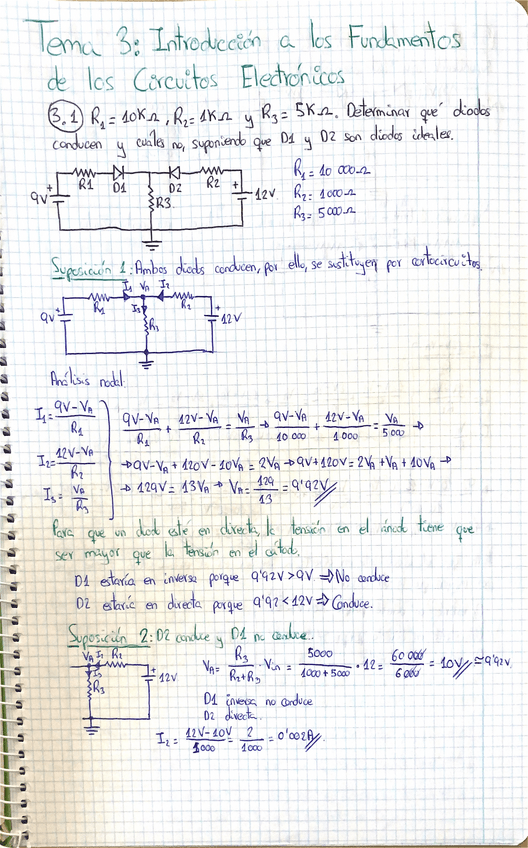 Tema 3: Introducción a los Fundamentos
de los Circuitos Electrónicos
3.1 R₁= 10KΩ, R₂= 1KΩ y R₃= 5KΩ. Determinar qué diodos
conducen y cuáles no, suponiendo que D1 y D2 son diodos ideales.
R1 D1 D2 R2
9V + R3 + 12V
R₁= 10 000Ω
R₂= 1000Ω
R₃= 5000Ω
Suposición 1: Ambos diodos conducen, por ello, se sustituyen por cortocircuitos.
I₁ VA I₂
9V + R₁ I₃ R₃ R₂ + 12V
Análisis nodal:
I₁= 9V-VA / R₁
I₂= 12V-VA / R₂
I₃= VA / R₃
9V-VA / R₁ + 12V-VA / R₂ = VA / R₃ → 9V-VA / 10 000 + 12V-VA / 1 000 = VA / 5 000 →
→ 9V-VA + 120V - 10VA = 2VA → 9V+120V = 2VA + VA + 10VA →
→ 129V = 13VA → VA = 129 / 13 = 9'92V
Para que un diodo esté en directa, la tensión en el ánodo tiene que
ser mayor que la tensión en el cátodo.
D1 estaría en inversa porque 9'92V > 9V ⇒ No conduce
D2 estaría en directa porque 9'92 < 12V ⇒ Conduce.
Suposición 2: D2 conduce y D1 no conduce.
VA I₂ R₂
I₃ R₃ + 12V
VA= R₃ / R₂+R₃ · Vin = 5000 / 1000+5000 · 12 = 60 000 / 6 000 = 10V ≃ 9'92V
D1 inversa no conduce
D2 directa.
I₂ = 12V-10V / 1000 = 2 / 1000 = 0'002A